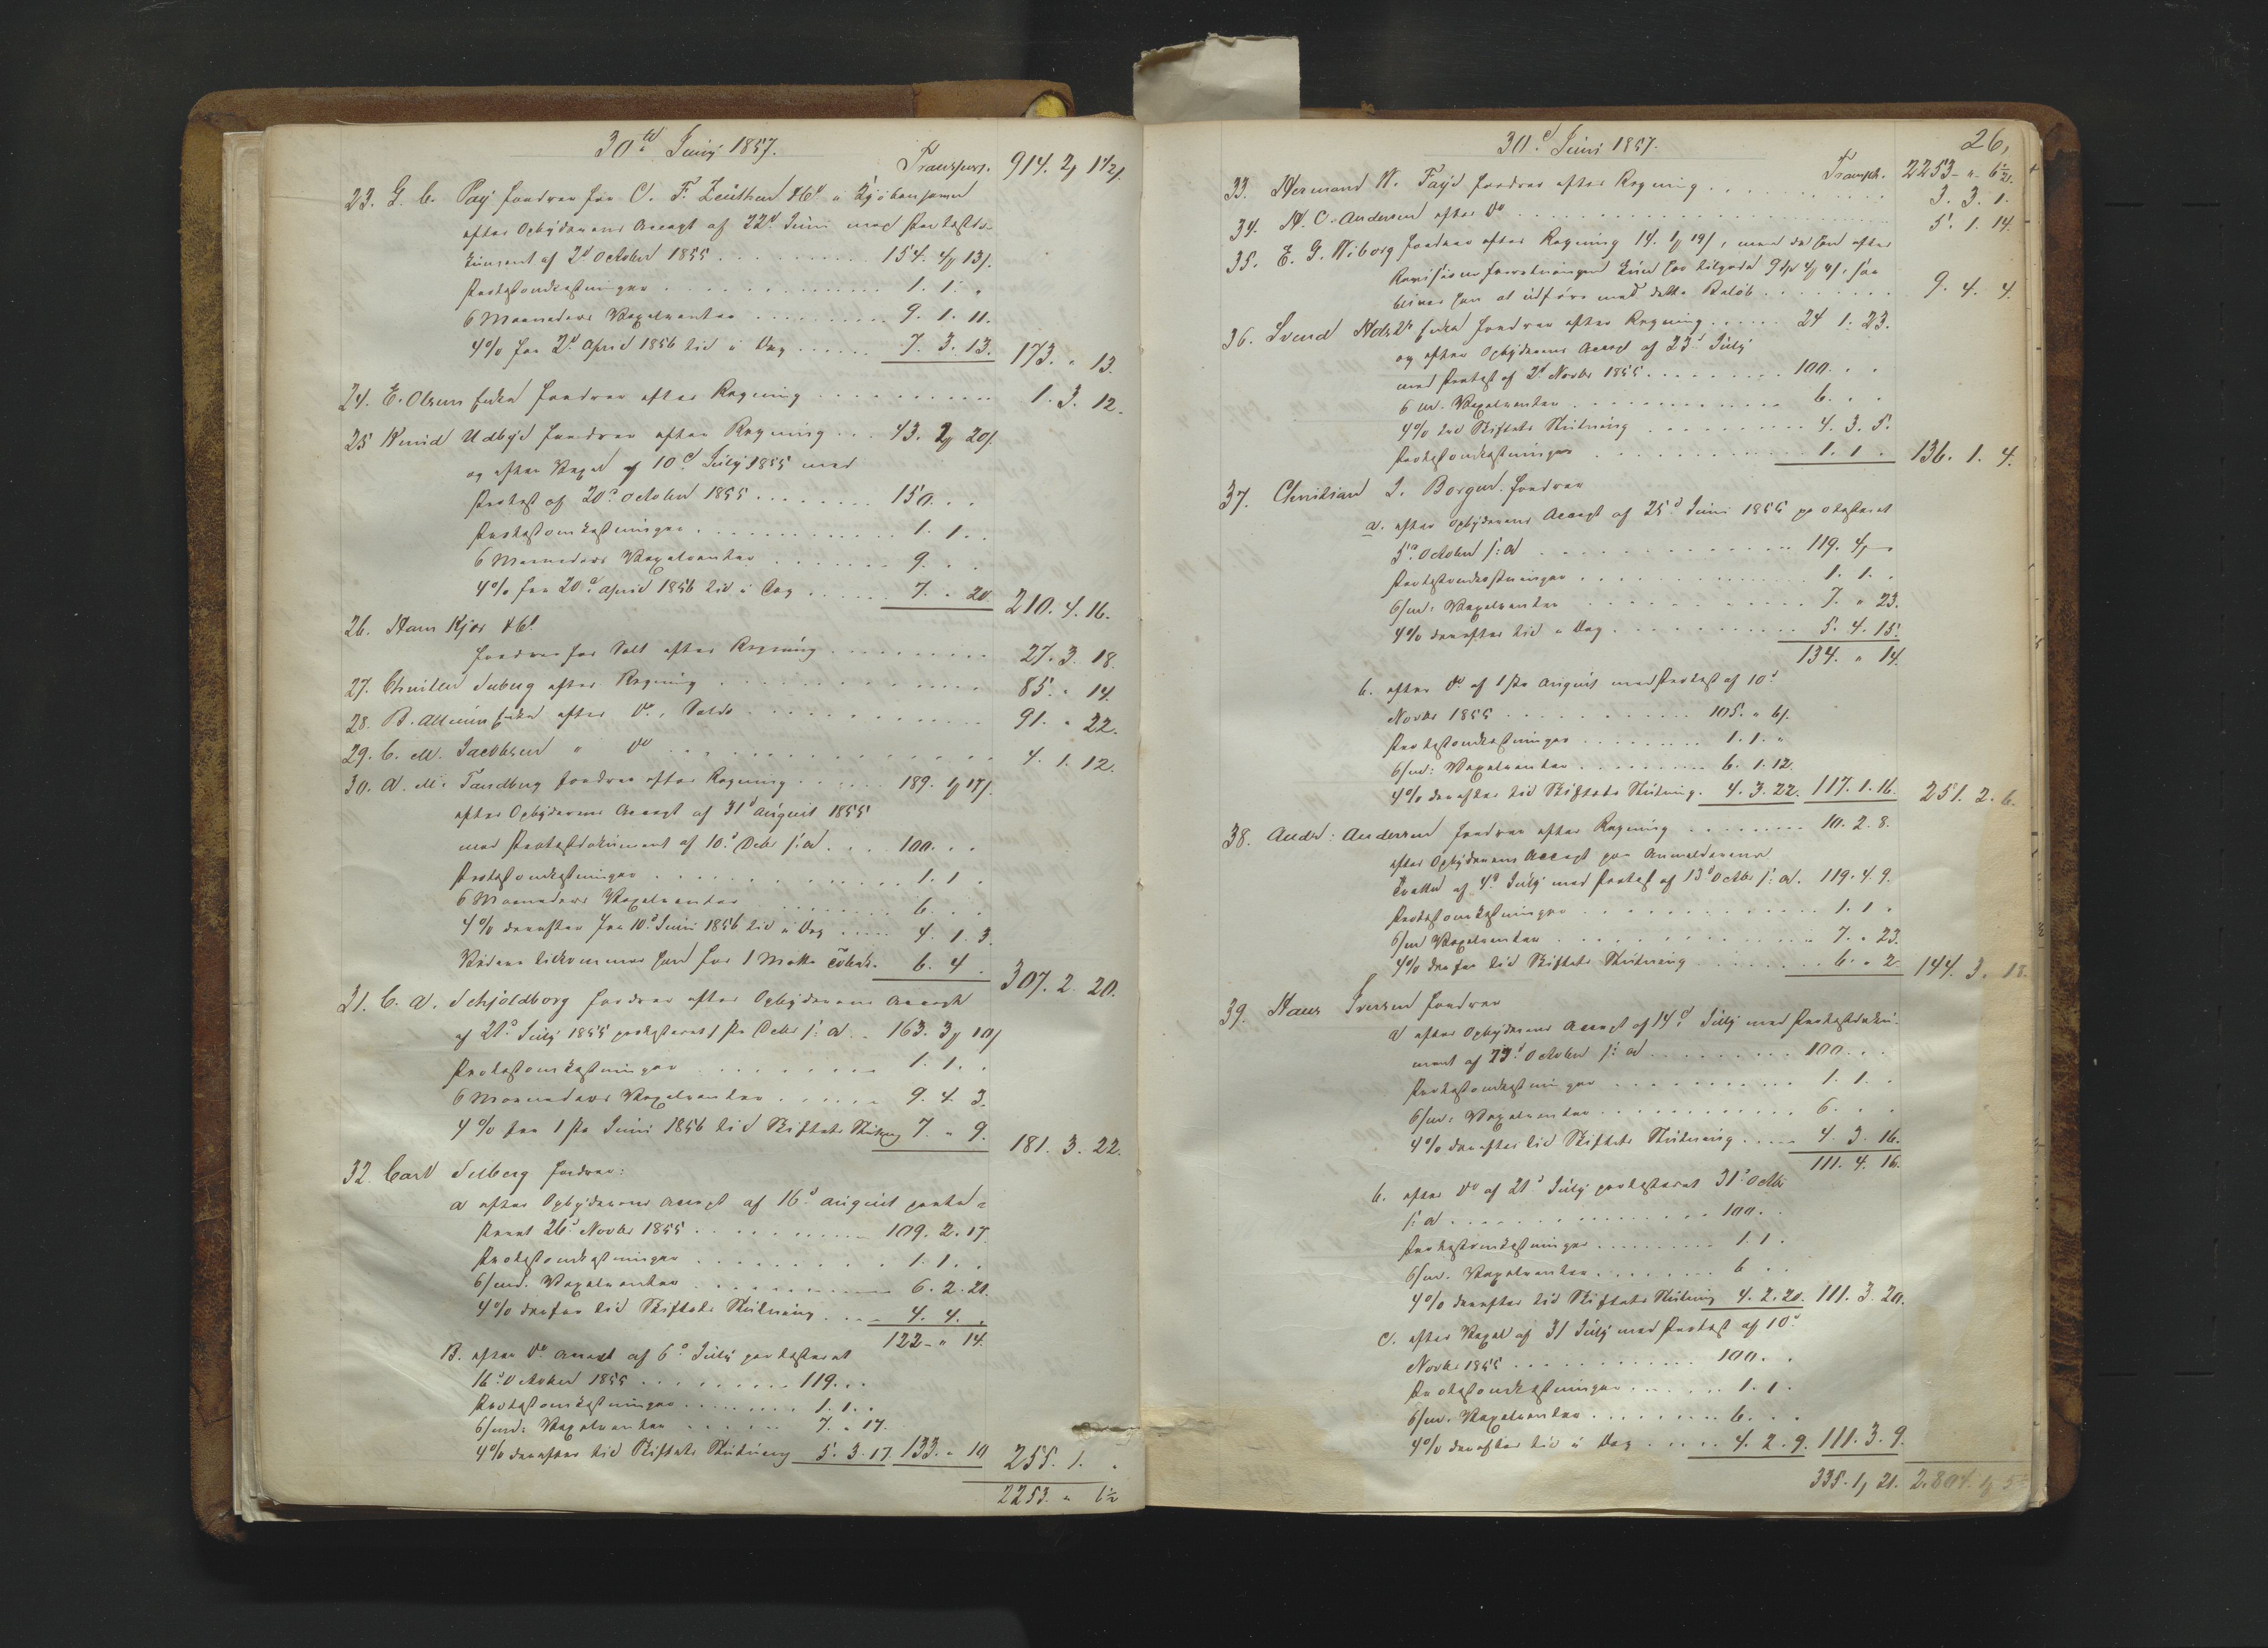 30te Juny 1857.
Transport. 914. 2 1 1/2
23. G. C. Pay fordrer for C. F. Zeuthen & Co i Kjøbenhavn
efter Opbyderens Accept af 22d Juni med Protestdo-
kument af 2d October 1855 . . . 154. 4 13
Protestomkostninger . . . 1. 1. "
6 Maaneders Vexelrenter . . . 9. 1. 11.
4% fra 2d April 1856 til i Dag . . . 7. 3. 13. 173. " 13.
24. E. Olsens Enke fordrer efter Regning . . . 1. 3. 12.
25 Knud Udbye fordrer efter Regning . . . 43. 2 20
og efter Vexel af 10d July 1855 med
Protest af 20d October 1855 . . . 150. . .
Protestomkostninger . . . 1. 1. .
6 Maaneders Vexelrenter . . . 9. . .
4% fra 20d April 1856 til i Dag . . . 7. " 20. 210. 4. 16.
26. Hans Kjær & Co
fordrer for Salt efter Regning . . . 27. 3. 18.
27. Christen Suberg efter Regning . . . 85. " 14.
28. B. Allums Enke efter Do, Saldo . . . 91. " 22.
29. C. M. Jacobsen " Do . . . 4. 1. 12.
30. A. M. Tandberg fordrer efter Regning . . . 189. 1 17
efter Opbyderens Accept af 31d August 1855
med Protestdokument af 10d Decbr s: A. . . 100. . .
Protestomkostninger . . . 1. 1 .
6 Maaneders Vexelrenter . . . 6. . .
4% derefter fra 10d Juni 1856 til i Dag . . . 4. 1. 3.
Videre tilkommer han for 1 Matte Tobak . 6. 4 . 307. 2. 20.
31. C. A. Schjoldborg fordrer efter Opbyderens Accept
af 21d July 1855 protesteret 1ste Decbr s: A. . 163. 3 10
Protestomkostninger . . . 1. 1. .
6 Maaneders Vexelrenter . . . 9. 4 3.
4% fra 1ste Juni 1856 til Skiftets Slutning 7. " 9. 181. 3. 22.
32. Carl Selberg fordrer:
a efter Opbyderens Accept af 16d August prote-
steret 26d Novbr 1855 . . . 109. 2. 17.
Protestomkostninger . . . 1. 1. .
6/md. Vexelrenter . . . 6. 2. 21.
4% derfra til Skiftets Slutning . . . 4. 4. .
122 " 14.
B. efter Do Accept af 6d July protesteret
16d October 1855 . . . 119. . .
Protestomkostninger . . . 1. 1. .
6/md: Vexelrenter . . . 7. " 17.
4% derefter til Skiftets Slutning 5. 3. 17. 133. " 10 255. 1. .
2253. " 6 1/2
30d Juni 1857. 26,
Transp. 2253 " 6 1/2.
33. Hermand N. Faye fordrer efter Regning . . . 3. 3. 1.
34. N. C. Andersen efter Do . . . 5. 1. 14.
35. E. G. Wiborg fordrer efter Regning 14. 1 19, men da han efter
Revisions forretningen kun har tilgode 9 4 4, saa
bliver han at udføre med dette Beløb . . . 9. 4. 4.
36. Svend Enke fordrer efter Regning . . . 24 1. 23.
og efter Opbyderens Accept af 23d July
med Protest af 2d Novbr 1855 . . . 100. . .
6 m. Vexelrenter . . . 6. . .
4% til Skiftets Slutning . . . 4. 3. 5.
Protestomkostninger . . . 1. 1 . 136. 1. 4.
37. Christian J. Borgen fordrer
a. efter Opbyderens Accept af 25d Juni 1855 protesteret
5d October s: A . . . 119. 4 "
Protestomkostninger . . . 1. 1. .
6/md. Vexelrenter . . . 7. " 23.
4% derefter til i Dag . . . 5. 4. 15.
134. " 14.
b. efter Do af 1ste August med Protest af 10d
Novbr 1855 . . . 105. " 6
Protestomkostninger . . . 1. 1. "
6/md: Vexelrenter . . . 6. 1. 12.
4% derefter til Skiftets Slutning . 4. 3. 22. 117. 1. 16. 251. 2. 6.
38. Andr: Andersen fordrer efter Regning . . . 10. 2. 8.
efter Opbyderens Accept paa Anmelderens
Tratte af 4d July med Protest af 13d Octbr s: A. 119. 4. 9.
Protestomkostninger . . . 1. 1 .
6/m Vexelrenter . . . 7. " 23.
4% derfra til Skiftets Slutning . . . 6. " 2. 144. 3. 18.
39. Hans Iversen fordrer
a efter Opbyderens Accept af 14d July med Protestdoku-
ment af 23d October s: A . . . 100. . .
Protestomkostninger . . . 1. 1. .
6/m: Vexelrenter . . . 6. . .
4% derefter til Skiftets Slutning . . . 4. 3. 16.
111. 4. 16.
b. efter Do af 21d July protesteret 31d Octbr
s: A . . . 100. .
Protestomkostninger . . . 1. 1 .
6/m. Vexelrenter . . . 6 . .
4% derefter til Skiftets Slutning 4. 2. 20. 111. 3. 20.
c. efter Vexel af 31 July med Protest af 10d
Novbr 1855 . . . 100. . .
Protestomkostninger . . . 1. 1 .
6/m. Vexelrenter . . . 6. . .
4% derefter til i Dag . . . 4. 2. 9. 111. 3. 9.
335. 1 21. 2.804. 1 5 1/2